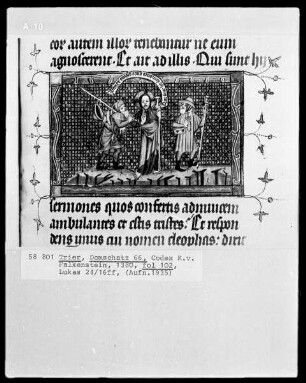 A-10
cor autem illor tenebantur ne eum
agnoscerent. Et ait ad illis. Qui sunt hij
sermones quos confertis adinvicem
ambulantes et estis tristes. Et respon
dens unus cui nomen cleophas: dixit
58 801 Trier, Domschatz 66, Codex K.v.
Falkenstein, 1380, fol 102,
Lukas 24/16ff, (Aufn.1935)